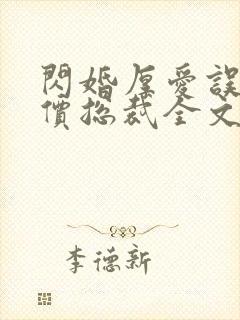 閃婚厚愛誤
價總裁全文
李德新